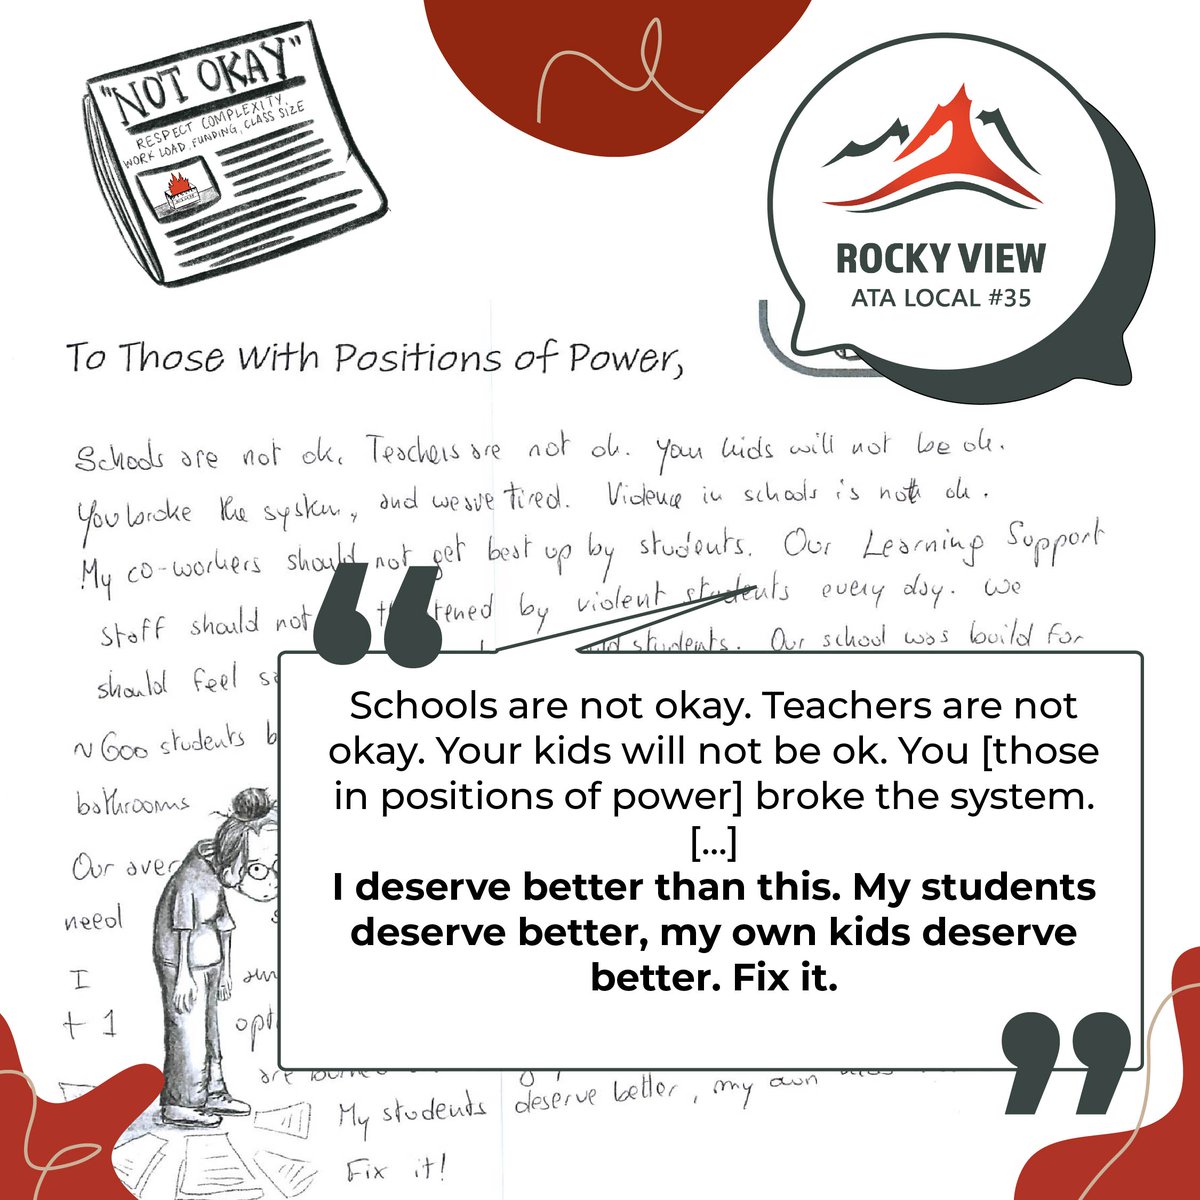 "NOT OKAY"
RESPECT COMPLEXITY,
WORK LOAD, FUNDING, CLASS SIZE
ROCKY VIEW
ATA LOCAL #35
To Those With Positions of Power,
Schools are not ok. Teachers are not ok. Your kids will not be ok.
You broke the system, and we're tired. Violence in schools is not ok.
My co-workers should not get beat up by students. Our Learning Support
staff should not by violent students every day. We
should feel students. Our school was build for
~ 600 students
bathrooms
Our over
need
I
+ 1
Schools are not okay. Teachers are not
okay. Your kids will not be ok. You [those
in positions of power] broke the system.
[...]
I deserve better than this. My students
deserve better, my own kids deserve
better. Fix it.
are
My students deserve better, my own
Fix it!